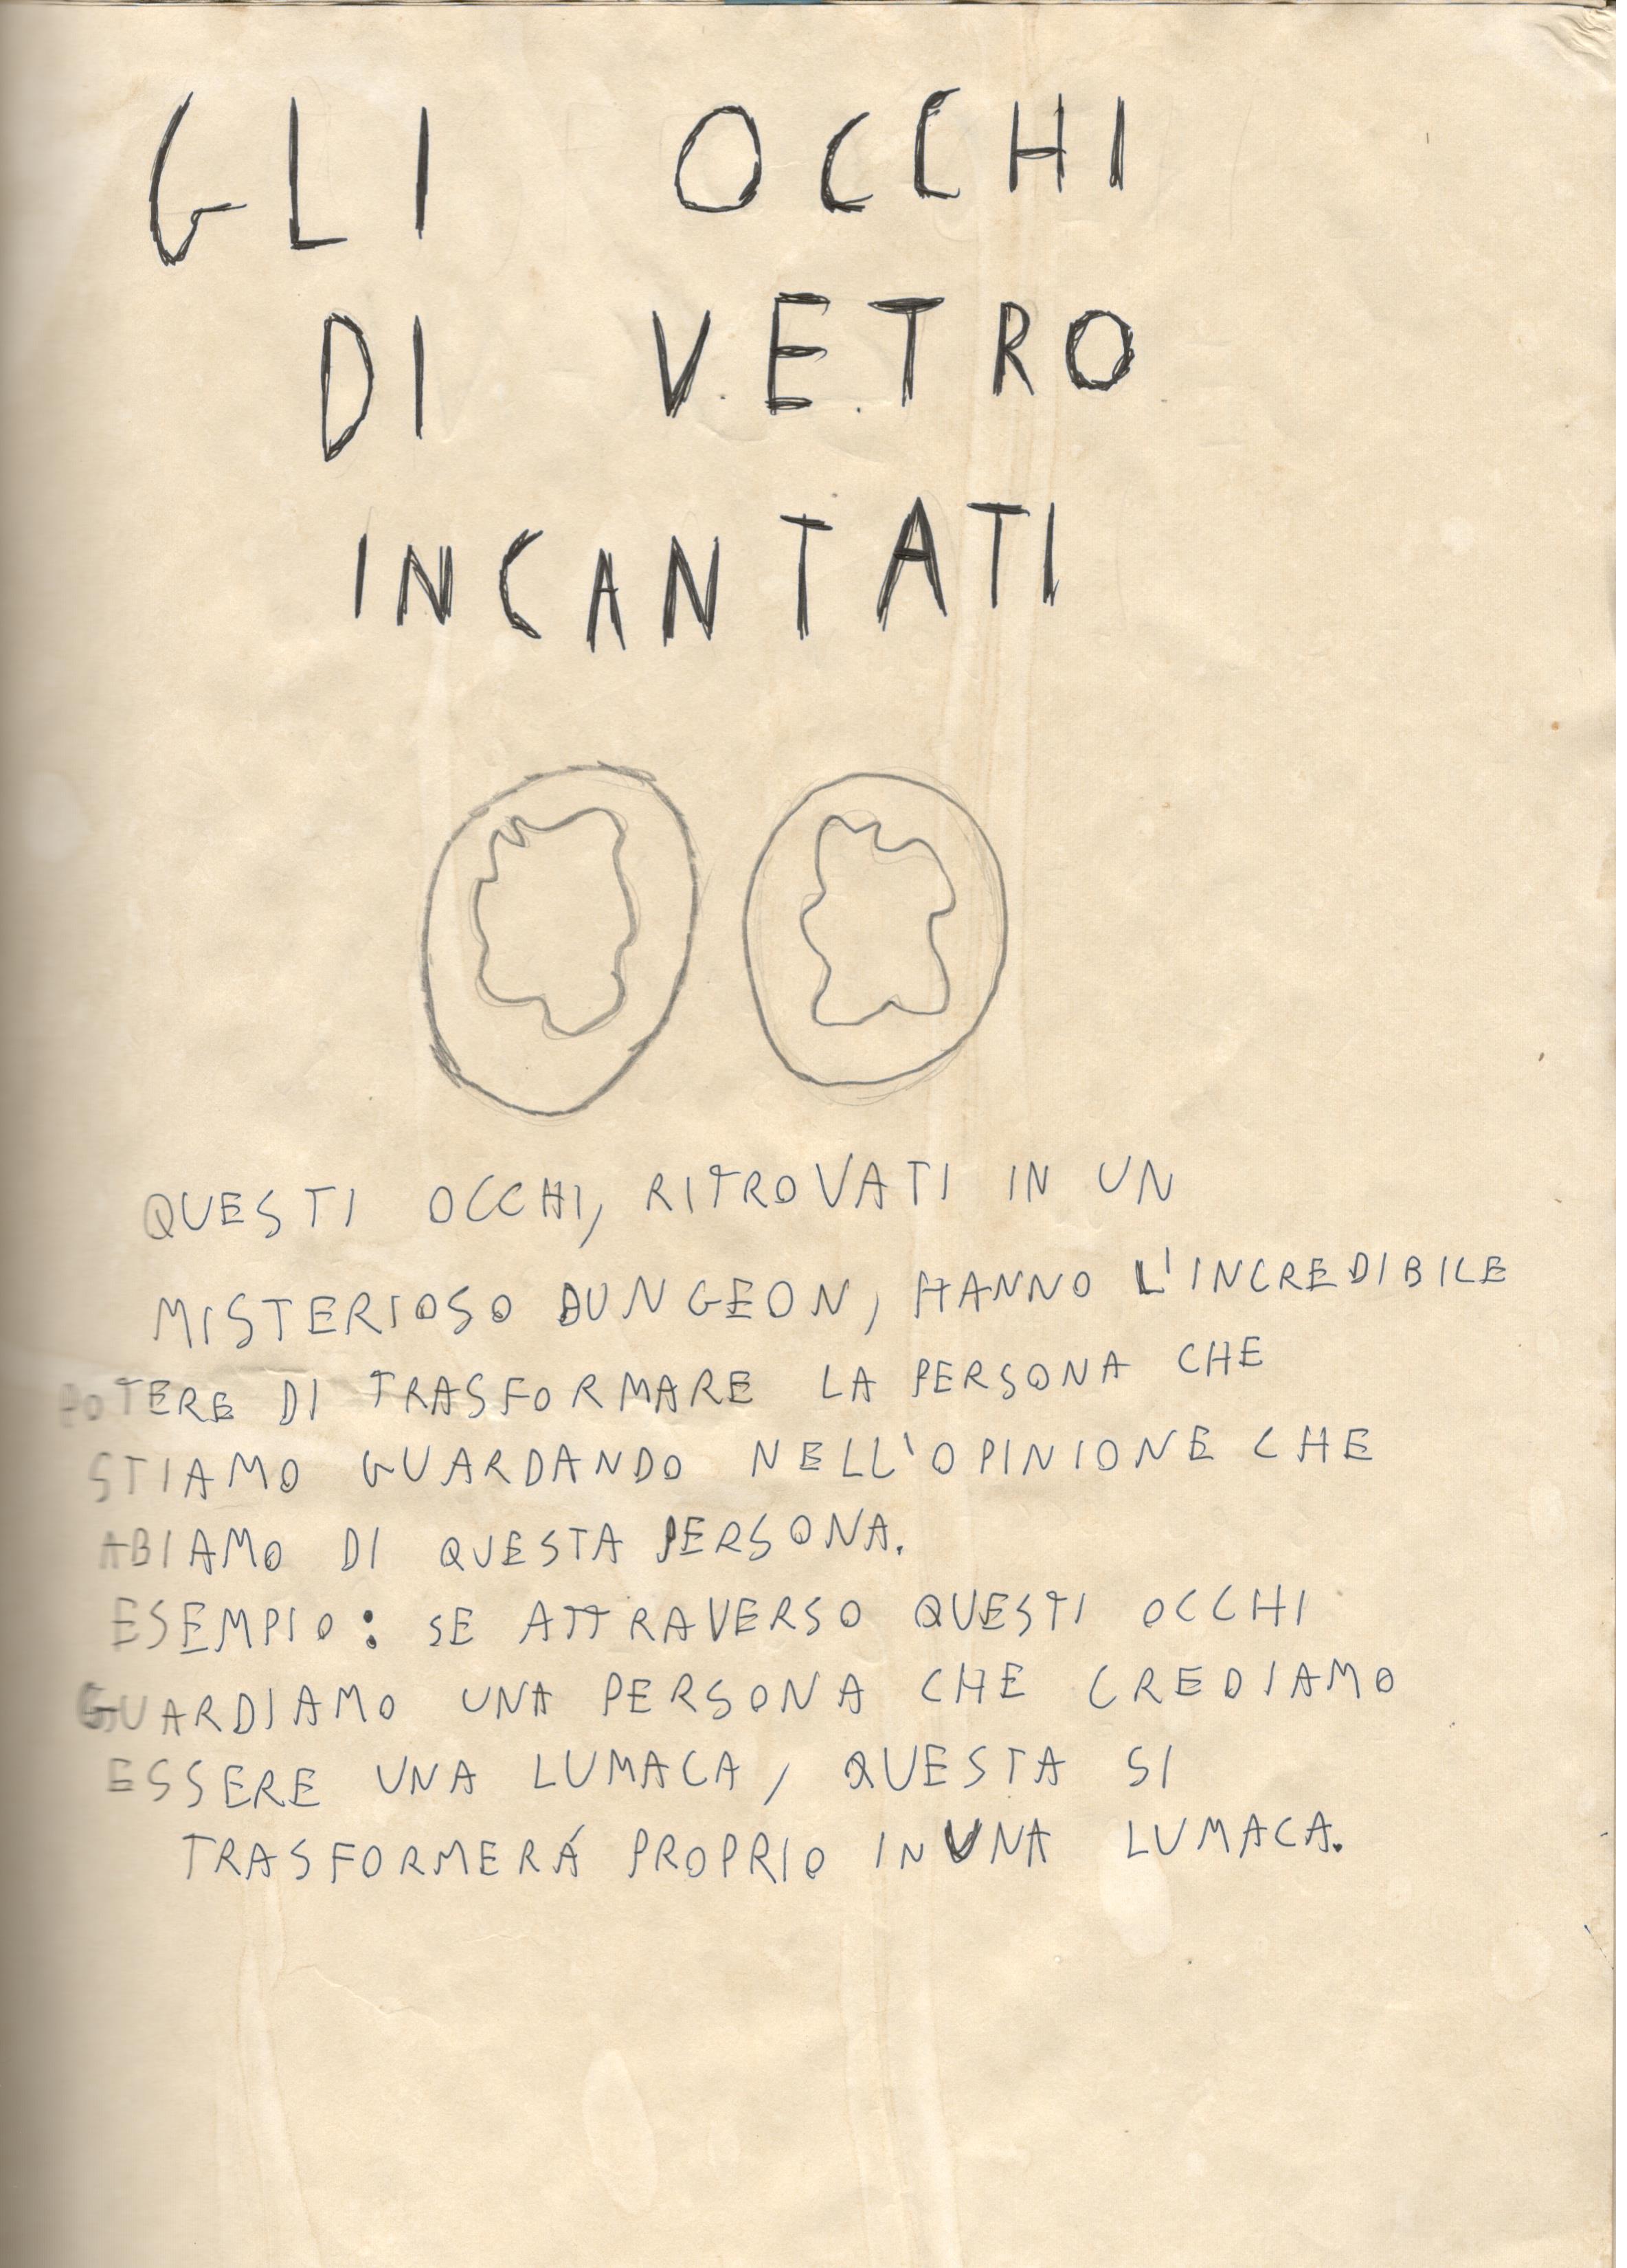 GLI OCCHI
DI VETRO
INCANTATI
QUESTI OCCHI, RITROVATI IN UN
MISTERIOSO DUNGEON, HANNO L'INCREDIBILE
POTERE DI TRASFORMARE LA PERSONA CHE
STIAMO GUARDANDO NELL'OPINIONE CHE
ABIAMO DI QUESTA PERSONA.
ESEMPIO: SE ATTRAVERSO QUESTI OCCHI
GUARDIAMO UNA PERSONA CHE CREDIAMO
ESSERE UNA LUMACA, QUESTA SI
TRASFORMERÁ PROPRIO IN UNA LUMACA.